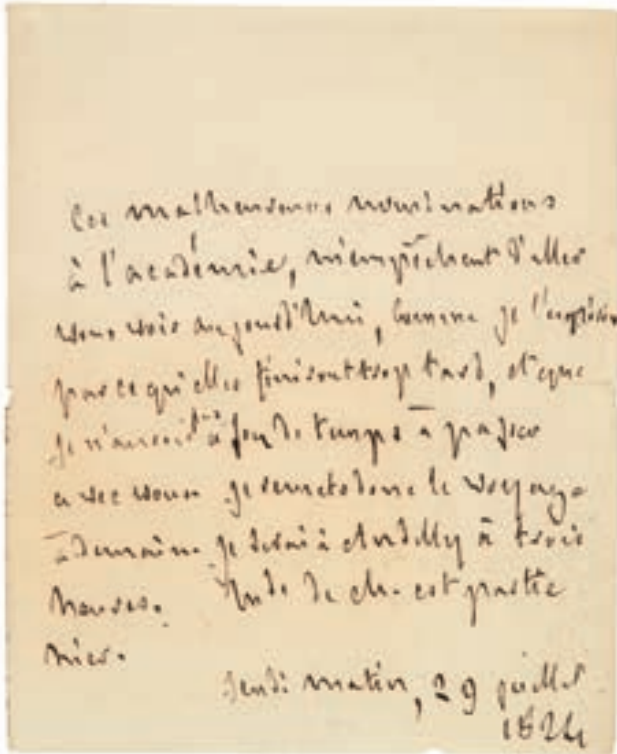 Ces malheureuses nominations
à l'académie, m'empêchent d'aller
vous voir aujourd'hui, comme je l'espérois
parce qu'elles finiront trop tard, et que
je n'aurois peu de temps à passer
avec vous. je remets donc le voyage
à demain. je serai à Andilly à trois
heures. Mde de Ch. est partie
hier.
Jeudi matin, 29 juillet
1824